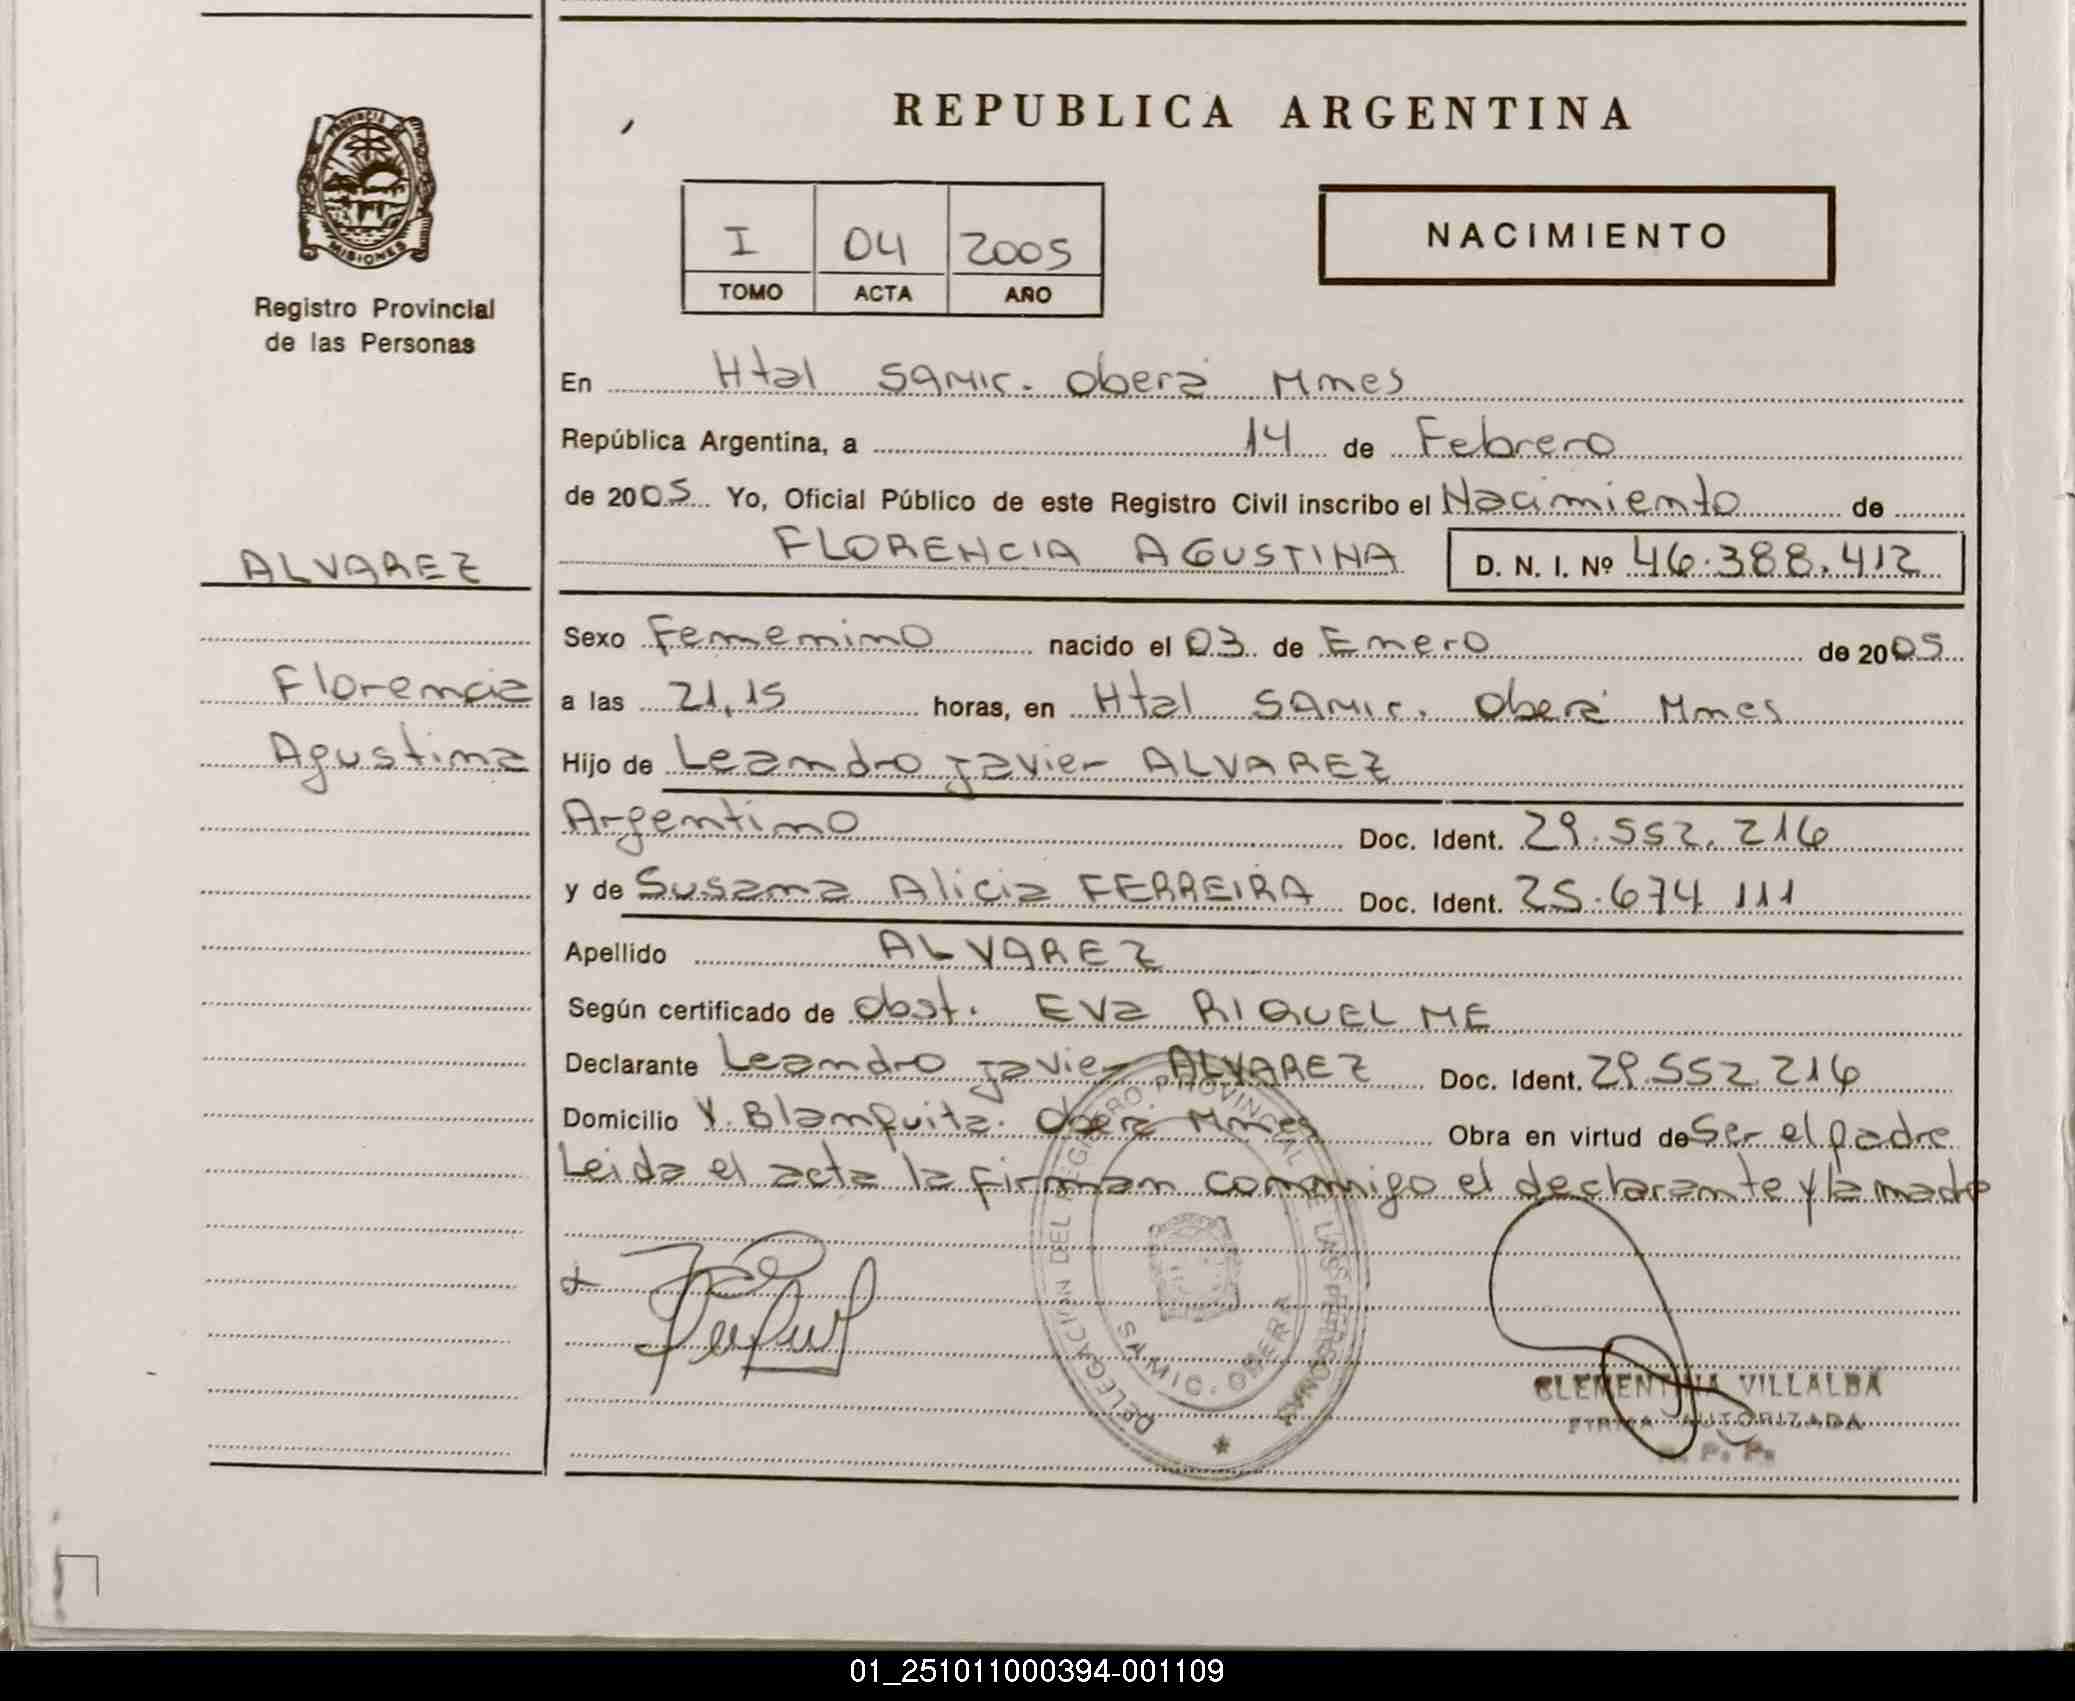 REPUBLICA ARGENTINA
PROVINCIA DE MISIONES
Registro Provincial
de las Personas
I 04 2005
TOMO ACTA AÑO
NACIMIENTO
En Htal SAMIC. Oberá Mnes
República Argentina, a 14 de Febrero
de 2005 Yo, Oficial Público de este Registro Civil inscribo el Nacimiento de
FLORENCIA AGUSTINA D. N. I. Nº 46.388.412
ALVAREZ
Florencia
Agustina
Sexo Femenino nacido el 03 de Enero de 2005
a las 21,15 horas, en Htal SAMIC. Oberá Mnes
Hijo de Leandro Javier ALVAREZ
Argentino Doc. Ident. 29.552.216
y de Susana Alicia FERREIRA Doc. Ident. 25.674 111
Apellido ALVAREZ
Según certificado de Obst. EVa RIQUELME
Declarante Leandro Javier ALVAREZ Doc. Ident. 29.552.216
Domicilio V. Blanquita. Oberá Mnes Obra en virtud de Ser el padre
Leida el acta la firman conmigo el declarante y la madre
DELEGACION DEL REGISTRO PROVINCIAL DE LAS PERSONAS
SAMIC. OBERA
CLEMENTINA VILLALBA
FIRMA AUTORIZADA
R. P. P.
01_251011000394-001109